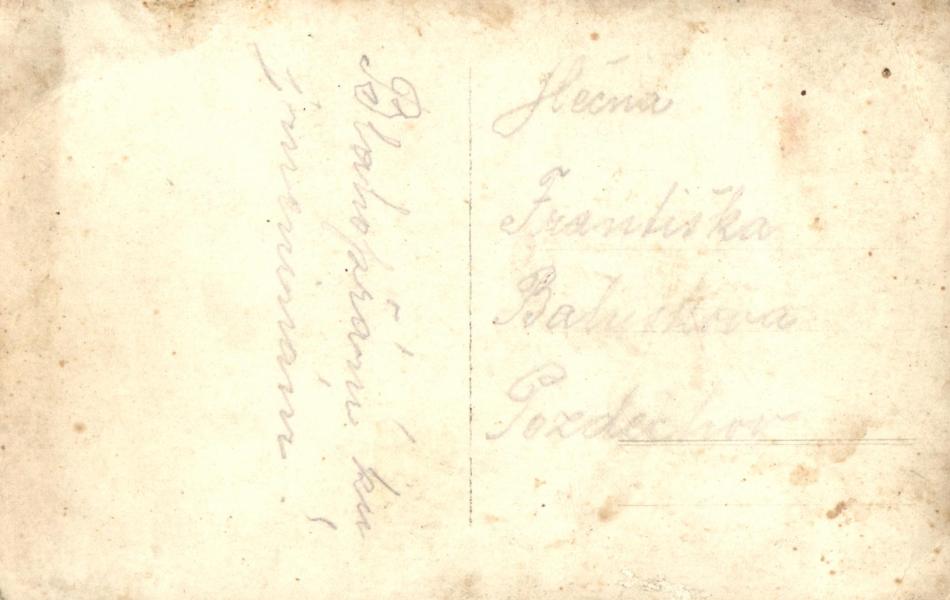 Blahopřání ku
jmeninám!
Slečna
Františka
Pozdechov